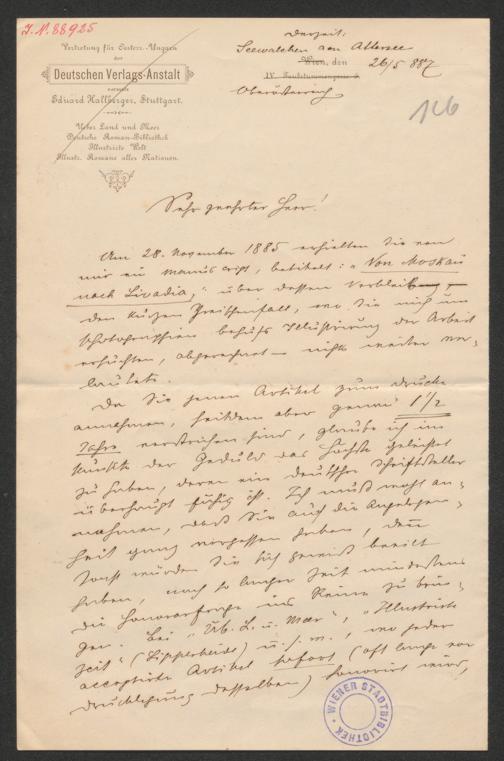 J.N. 88925
Vertretung für Oesterr.-Ungarn
der
Deutschen Verlags-Anstalt
vormals
Eduard Hallberger, Stuttgart.
Ueber Land und Meer
Deutsche Roman-Bibliothek
Illustrirte Welt
Illustr. Romane aller Nationen.
Derzeit:
Seewalchen am Attersee
Wien, den 26/5 887
Oberösterreich
126
Sehr geehrter Herr!
Am 28. November 1885 erhielten Sie von
mir ein Manuscript, betitelt: „Von Moskau
nach Livadia," über dessen Verbleib,
den kurzen Zwischenfall, wo Sie mich um
Photographien behufs Illustrirung der Arbeit
ersuchten, abgerechnet – nichts weiter ver-
lautete.
Da Sie jenen Artikel zum Drucke
annahmen, seitdem aber genau 1 1/2
Jahre verstrichen sind, glaube ich im
Punkte der Geduld das Höchste geleistet
zu haben, deren ein deutscher Schriftsteller
überhaupt fähig ist. Ich muß wohl an-
nehmen, daß Sie auf die Angelegen-
heit ganz vergessen haben, denn
sonst würden Sie sich gewiß beeilt
haben, nach so langer Zeit mindestens
die Honorarfrage ins Reine zu brin-
gen. Bei „Üb. L. u. Meer", „Illustrirte
Zeit" (Lipperheide) u. s. w., wo jeder
acceptirte Artikel sofort (oft lange vor
Drucklegung desselben) honorirt wird,
WIENER STADTBIBLIOTHEK